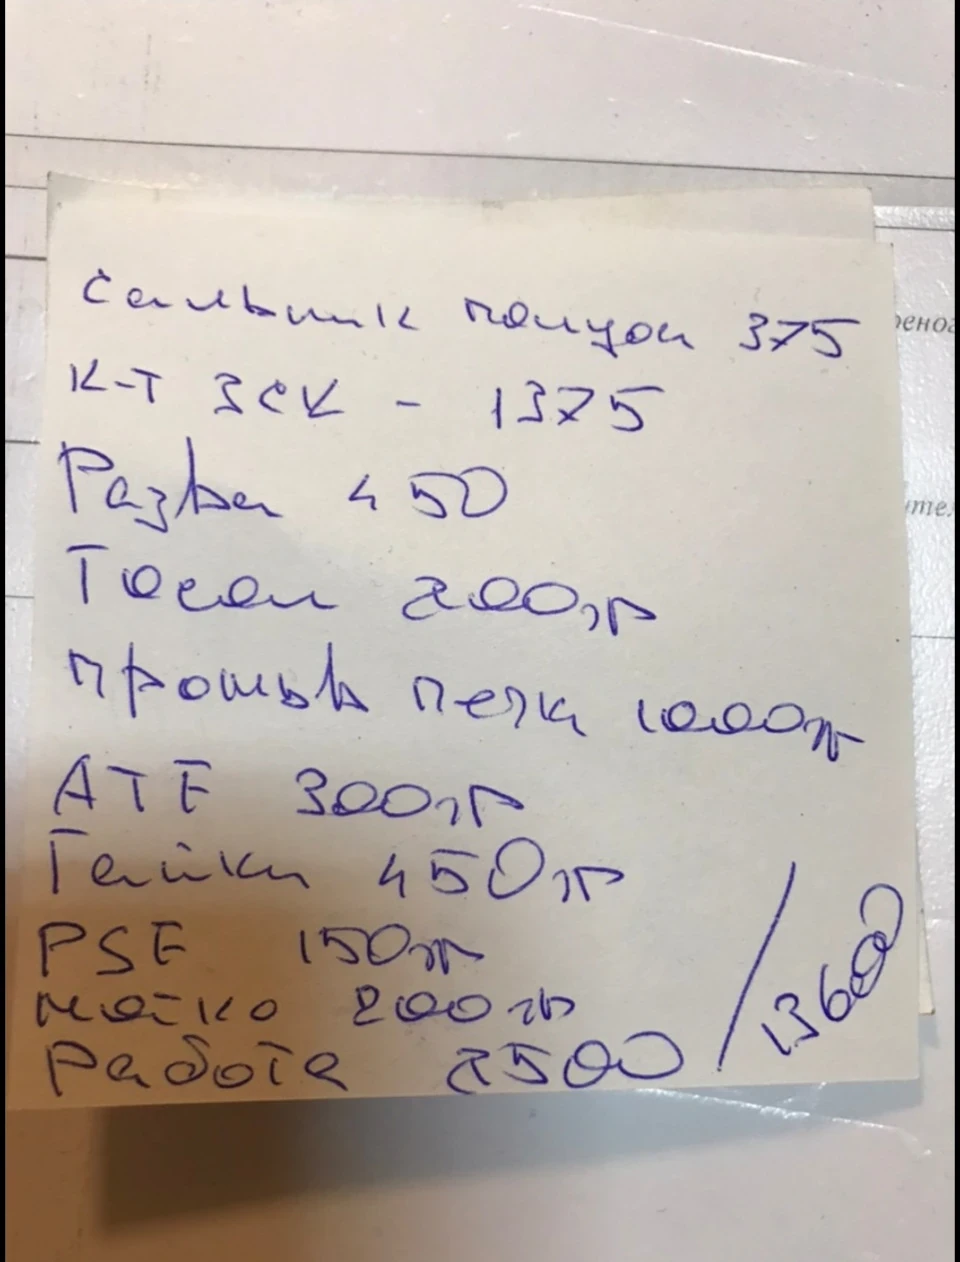 Сальник полуоси 375
К-т ЗСК - 1375
Развал 450
Тосол 200гр
Промыв печки 1000гр
ATF 300гр
Гайки 450гр
PSF 150гр
мойка 200гр
Работа 2500 / 13600